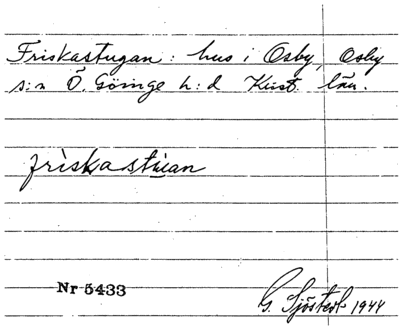 Friskastugan: hus i Osby, Osby
s:n Ö. Göinge h:d Krist. län.
friskastuan
Nr 5433
G. Sjöstedt 1944